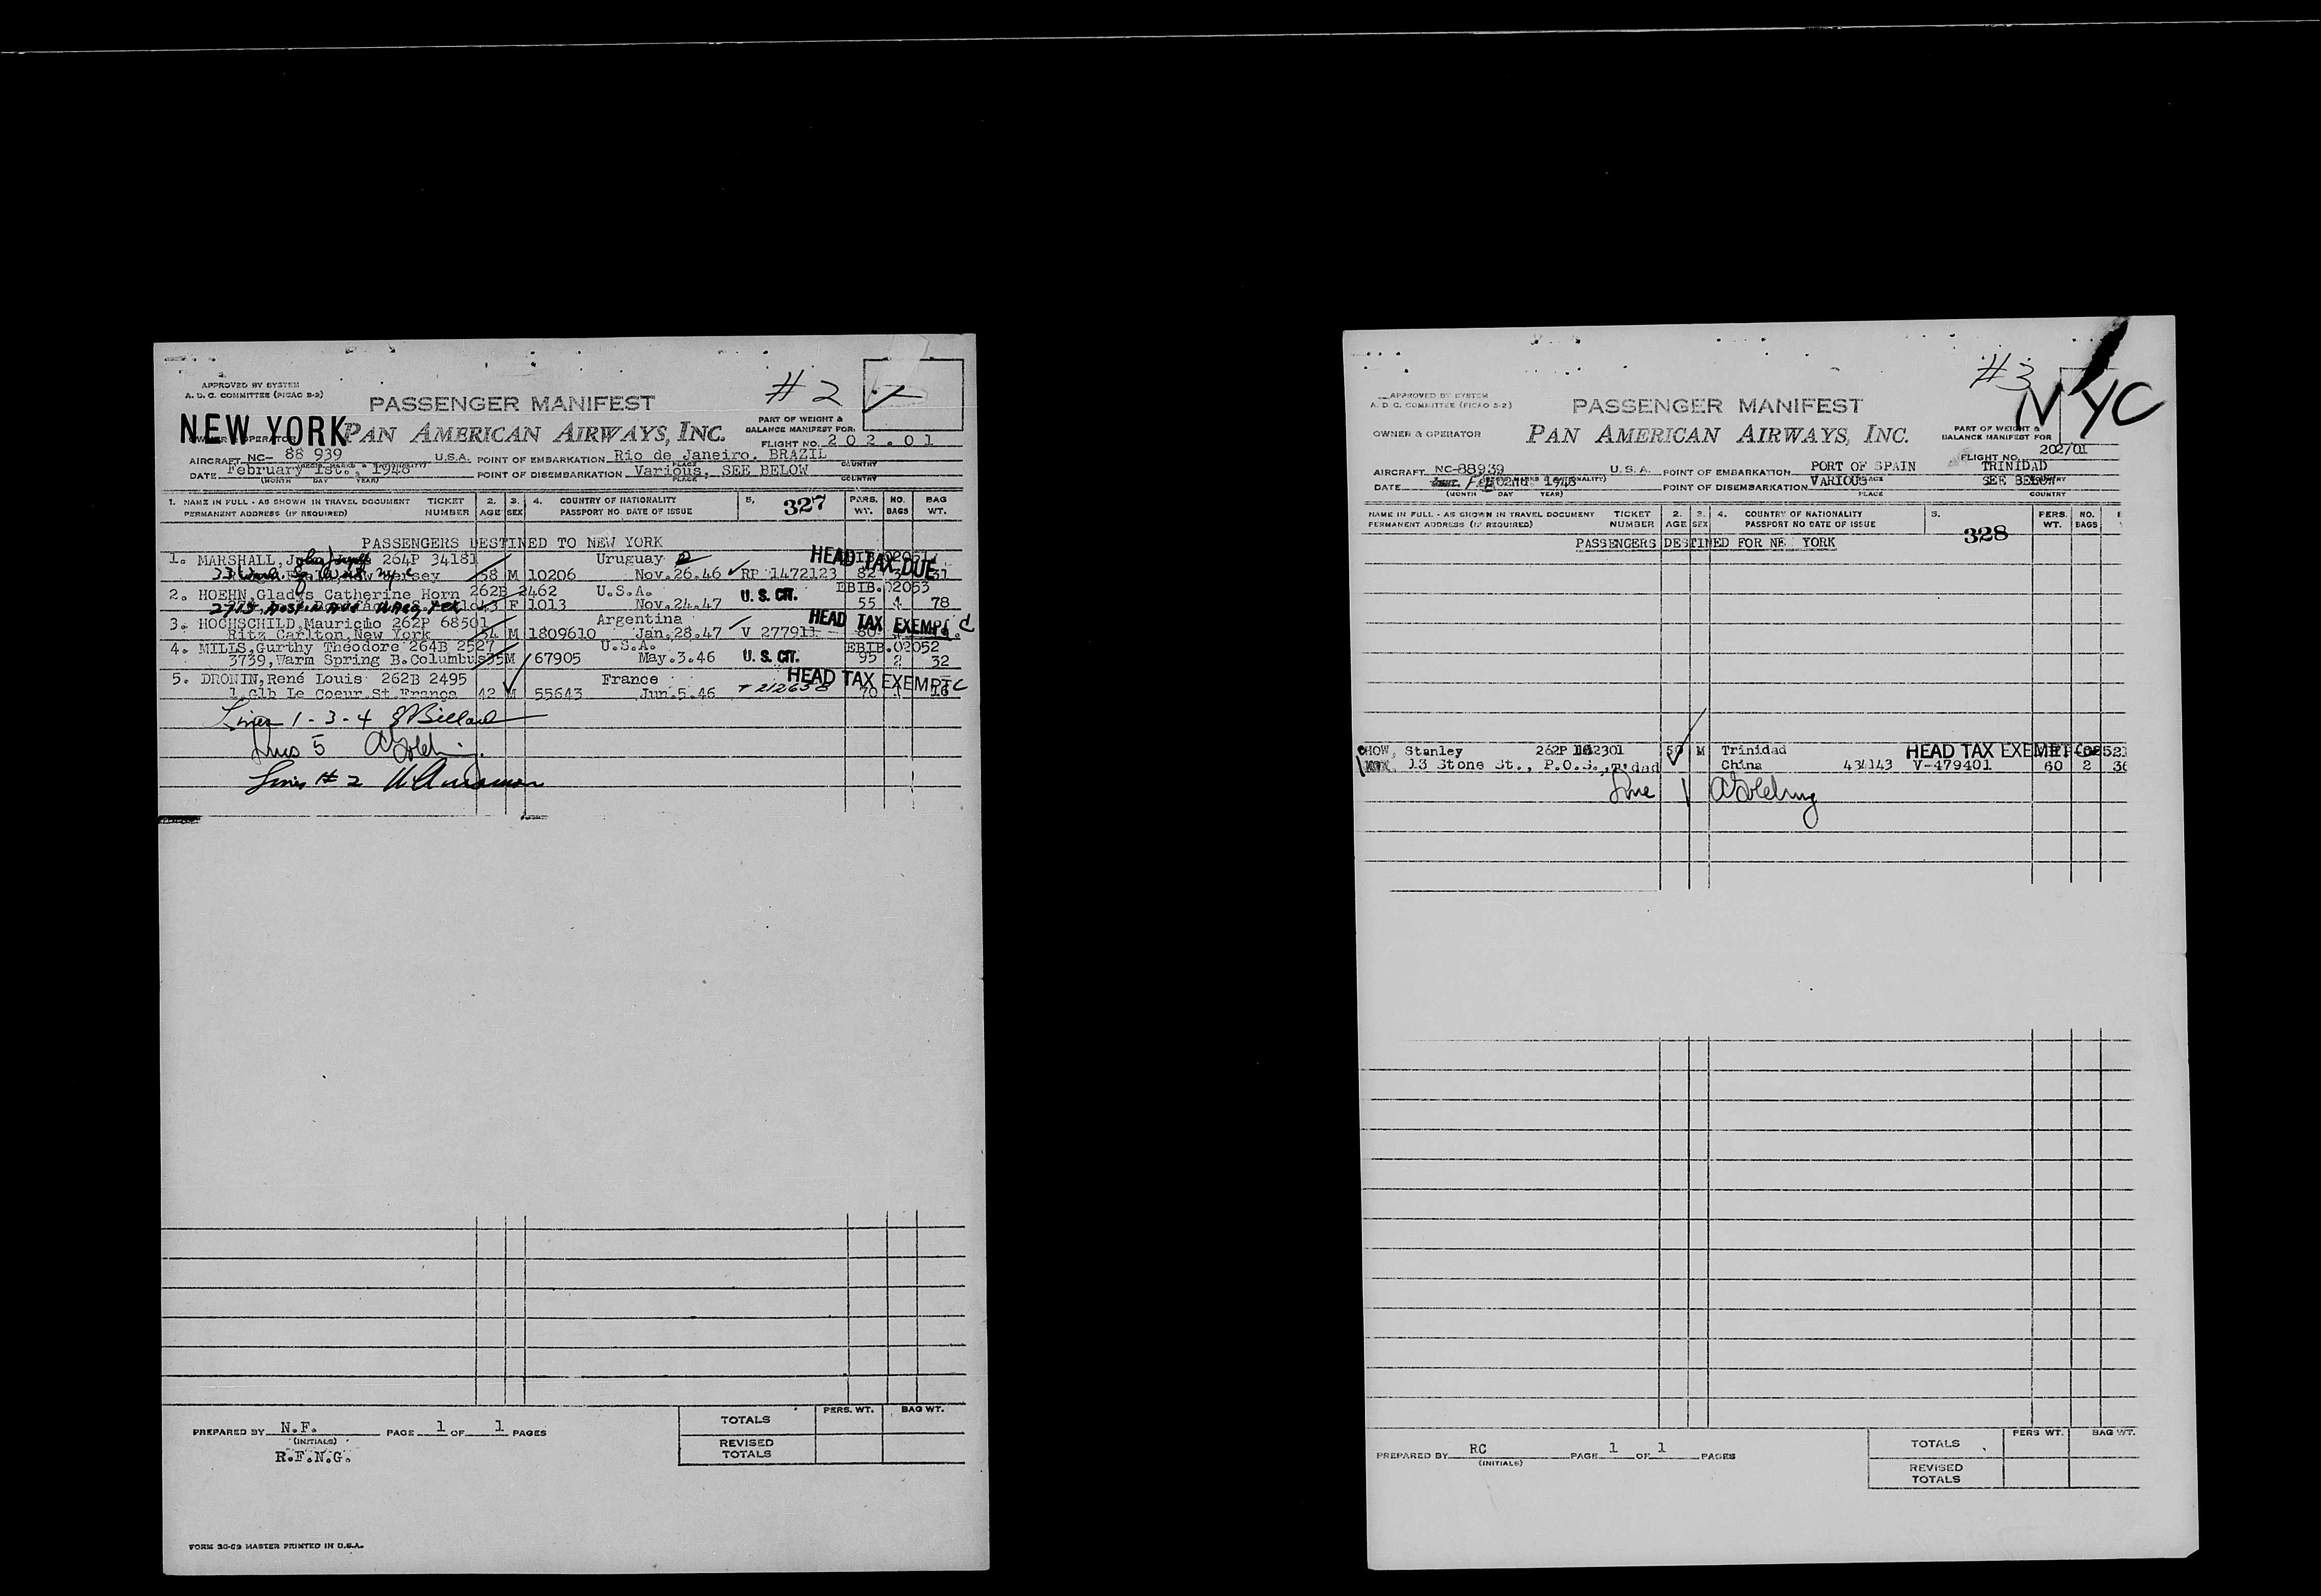 APPROVED BY SYSTEM
A. D. C. COMMITTEE (PICAO S-2)
# 2
PASSENGER MANIFEST
NEW YORK
OWNER & OPERATOR
PAN AMERICAN AIRWAYS, INC.
PART OF WEIGHT &
BALANCE MANIFEST FOR
FLIGHT NO. 202.01
AIRCRAFT NC- 88 939 U.S.A. POINT OF EMBARKATION Rio de Janeiro. BRAZIL
PLACE COUNTRY
DATE February 1st., 1948 POINT OF DISEMBARKATION Various, SEE BELOW
(MONTH DAY YEAR) PLACE COUNTRY
1. NAME IN FULL - AS SHOWN IN TRAVEL DOCUMENT TICKET 2. 3. 4. COUNTRY OF NATIONALITY 5. 327 PERS. NO. BAG
PERMANENT ADDRESS (IF REQUIRED) NUMBER AGE SEX PASSPORT NO. DATE OF ISSUE WT. BAGS WT.
PASSENGERS DESTINED TO NEW YORK
1. MARSHALL, John 264P 34181 Uruguay HEAD TAX DUE
Jersey 58 M 10206 Nov.26.46 RP 1472123 82 31
2. HOEHN, Gladys Catherine Horn 262B 2462 U.S.A. U. S. CIT. EBIB.02053
43 F 1013 Nov.24.47 55 4 78
3. HOCHSCHILD, Mauricio 262P 68501 Argentina HEAD TAX EXEMPT
Ritz Carlton, New York 54 M 1809610 Jan.28.47 V 277911 80
4. MILLS, Gurthy Theodore 264B 2527 U.S.A. EBIB.02052
3739, Warm Spring B.Columbus 35 M 67905 May.3.46 U. S. CIT. 95 2 32
5. DRONIN, René Louis 262B 2495 France HEAD TAX EXEMPT C
Le Coeur St.França 42 M 55643 Jun.5.46 T 212658 70 16
Lines 1-3-4
Lines 5 A Golding
Lines # 2
PREPARED BY N.F. PAGE 1 OF 1 PAGES
(INITIALS)
R.F.N.G.
PERS. WT. BAG WT.
TOTALS
REVISED
TOTALS
FORM 30-69 MASTER PRINTED IN U.S.A.
APPROVED BY SYSTEM
A. D. C. COMMITTEE (PICAO S-2)
#3
NYC
PASSENGER MANIFEST
OWNER & OPERATOR
PAN AMERICAN AIRWAYS, INC.
PART OF WEIGHT &
BALANCE MANIFEST FOR
FLIGHT NO. 202/01
AIRCRAFT NC-88939 U. S. A. POINT OF EMBARKATION PORT OF SPAIN TRINIDAD
DATE 1948 POINT OF DISEMBARKATION VARIOUS SEE BELOW
(MONTH DAY YEAR) PLACE COUNTRY
NAME IN FULL - AS SHOWN IN TRAVEL DOCUMENT TICKET 2. 3. 4. COUNTRY OF NATIONALITY 5. 328 PERS. NO.
PERMANENT ADDRESS (IF REQUIRED) NUMBER AGE SEX PASSPORT NO DATE OF ISSUE WT. BAGS
PASSENGERS DESTINED FOR NEW YORK
CHOW, Stanley 262P 50 M Trinidad HEAD TAX EXEMPT
13 Stone St., P.O.S., T'dad China 434143 V-479401 60 2
Line 1 A Golding
PREPARED BY RC PAGE 1 OF 1 PAGES
(INITIALS)
PERS WT. BAG WT.
TOTALS
REVISED
TOTALS